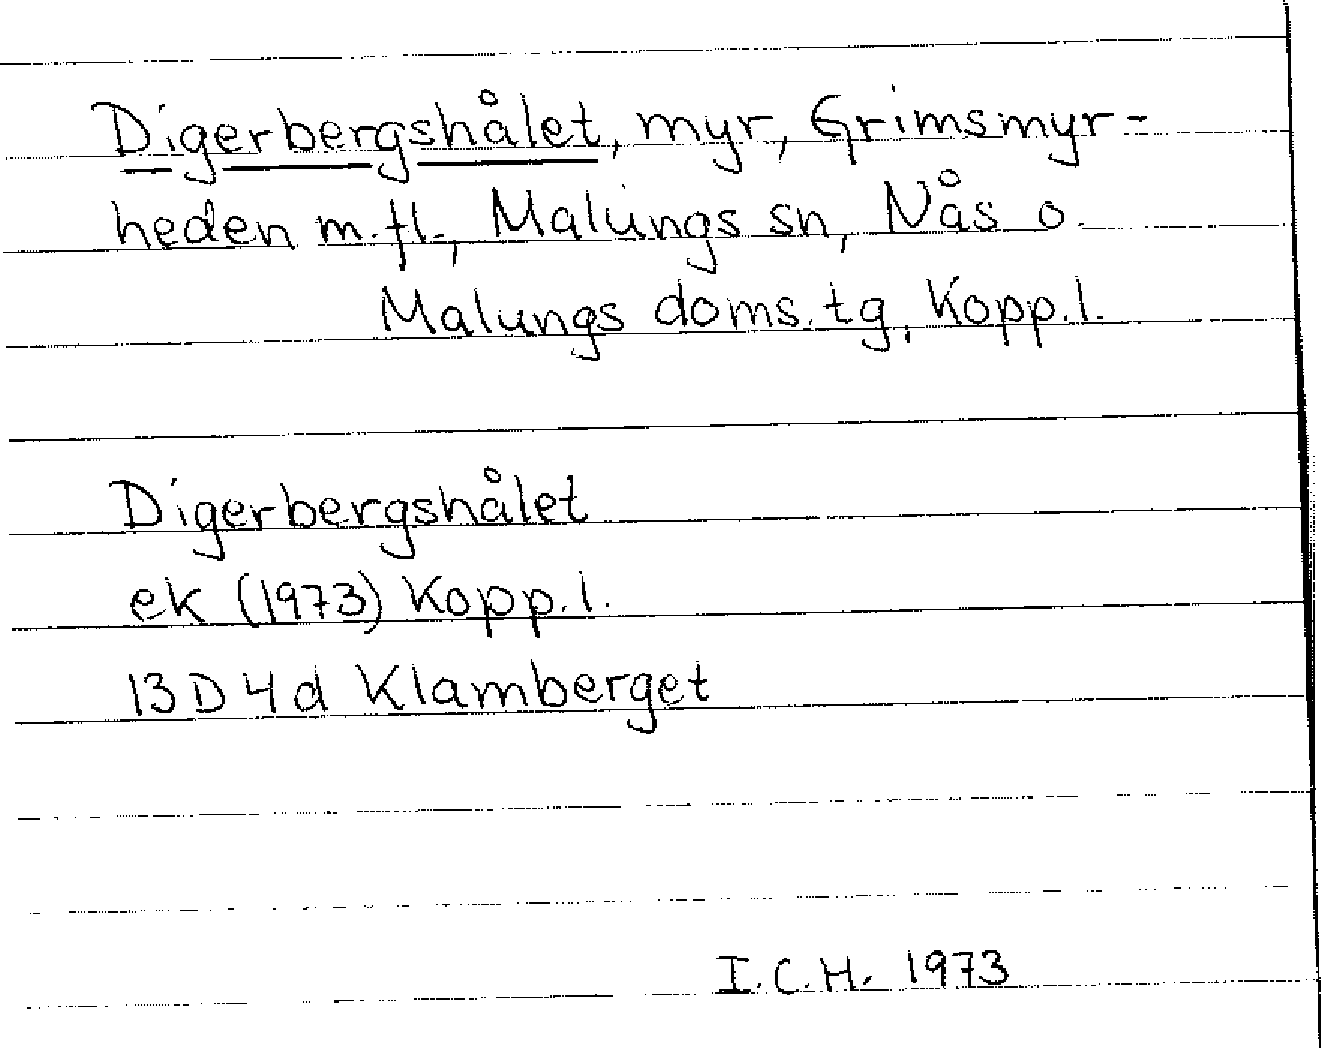 Digerbergshålet, myr, Grimsmyr-
heden m.fl., Malungs sn, Nås o.
Malungs doms.tg, Kopp.l.
Digerbergshålet
ek (1973) Kopp.l.
13D4d Klamberget
I.C.H. 1973